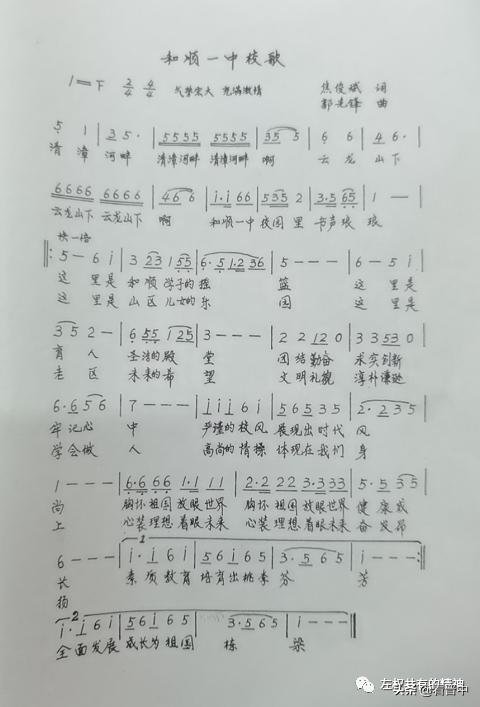 和顺一中校歌
1=下 2/4 4/4 气势宏大 充满激情 焦俊斌 词
郭先锋 曲
5 1 | 3 5· | 5555 5555 | 35 5 | 6 6 | 4 6· |
清漳 河畔 清漳河畔 清漳河畔 啊 云龙 山下
6666 6666 | 46 6 | i·i 66 | 535 2 | 3·5 65 | 1 — |
云龙山下 云龙山下 啊 和顺一中 校园 里 书声琅 琅
快一倍
5 - 6 i | 3 23 1 55 | 6·5 1·2 36 | 5 - - - | 6 - 5 i |
这 里是 和 顺 学子的 摇 篮 这 里是
这 里是 山 区 儿女的 乐 园 这 里是
3 5 2 - | 6 55 1 25 | 3 - - - | 2 2 12 0 | 3 3 53 0 |
育 人 圣洁的殿 堂 团结勤奋 求实创新
老 区 未来的希 望 文明礼貌 淳朴谦逊
6·6 5 6 | 7 - - - | i i i 6 i | 5 6 5 3 5 | 2·2 3 5 |
牢记心 中 严谨的校风 展现出时代 风
学会做 人 高尚的情操 体现在我们 身
1 - - - | 6·6 66 1·1 11 | 2·2 22 3·3 33 | 5·5 3 5 |
尚 胸怀祖国 放眼世界 胸怀祖国 放眼世界 健康成
上 心装理想 着眼未来 心装理想 着眼未来 奋发昂
6 - - - | 1 i·i 6 i | 5 6 i 6 5 | 3·5 6 5 | i - - - :||
长 素质教育 培育出桃李 芬 芳
扬
2 i·i 6 i | 5 6 i 6 5 | 3·5 6 5 | i - - - ||
全面发展 成长为祖国 栋 梁
左权共有的精神
头条@看晋中